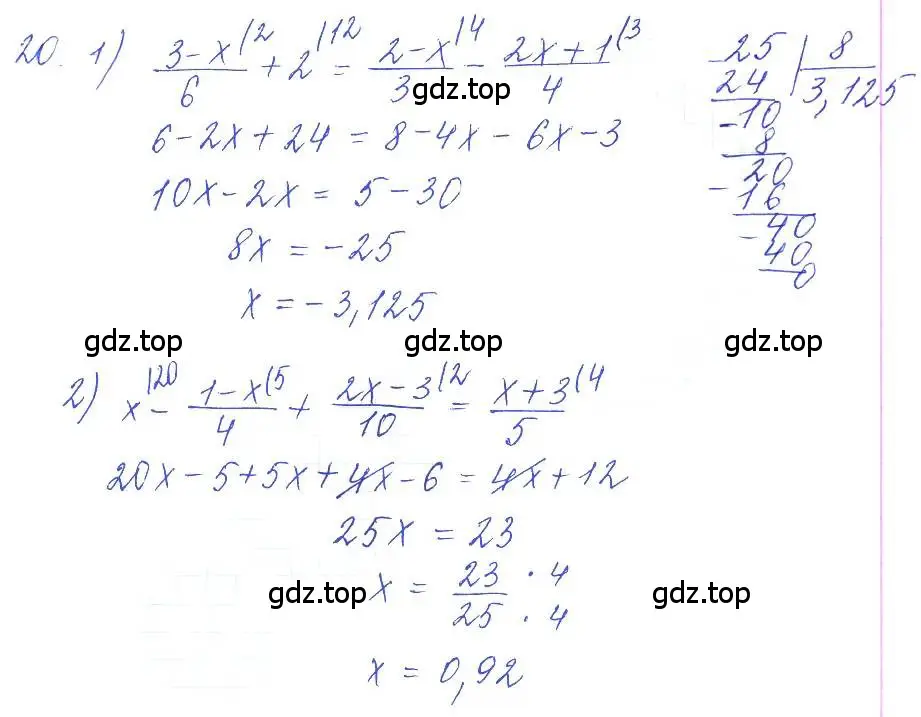 20. 1) (3-x)/6 (2 + 2 |12 = (2-x)/3 |4 - (2x+1)/4 (3
gdz.top
6-2x+24 = 8-4x-6x-3
10x-2x = 5-30
8x = -25
x = -3,125
25 | 8
24 | 3,125
-10
8
20
-16
-40
40
0
gdz.top gdz.top gdz.top
2) x |20 - (1-x)/4 (5 + (2x-3)/10 (2 = (x+3)/5 (4
20x-5+5x+4x-6 = 4x+12
25x = 23
gdz.top x = 23/25 · 4/· 4 gdz.top
x = 0,92